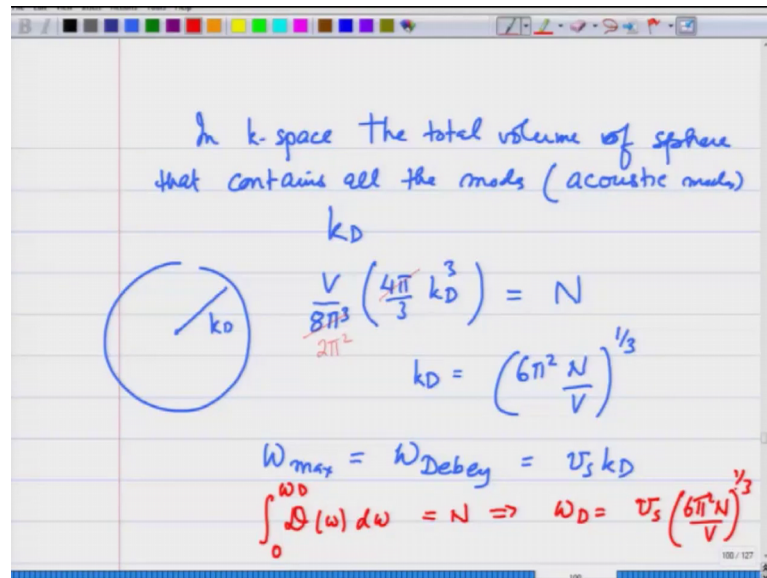 In k-space The total volume of sphere
that contains all the modes (acoustic modes)
kD
kD
V/8π³ (4π/3 kD³) = N
2π²
kD = (6π² N/V)^1/3
ωmax = ωDebey = vs kD
∫₀^ωD D(ω) dω = N ⇒ ωD = vs (6π²N/V)^1/3
100 / 127